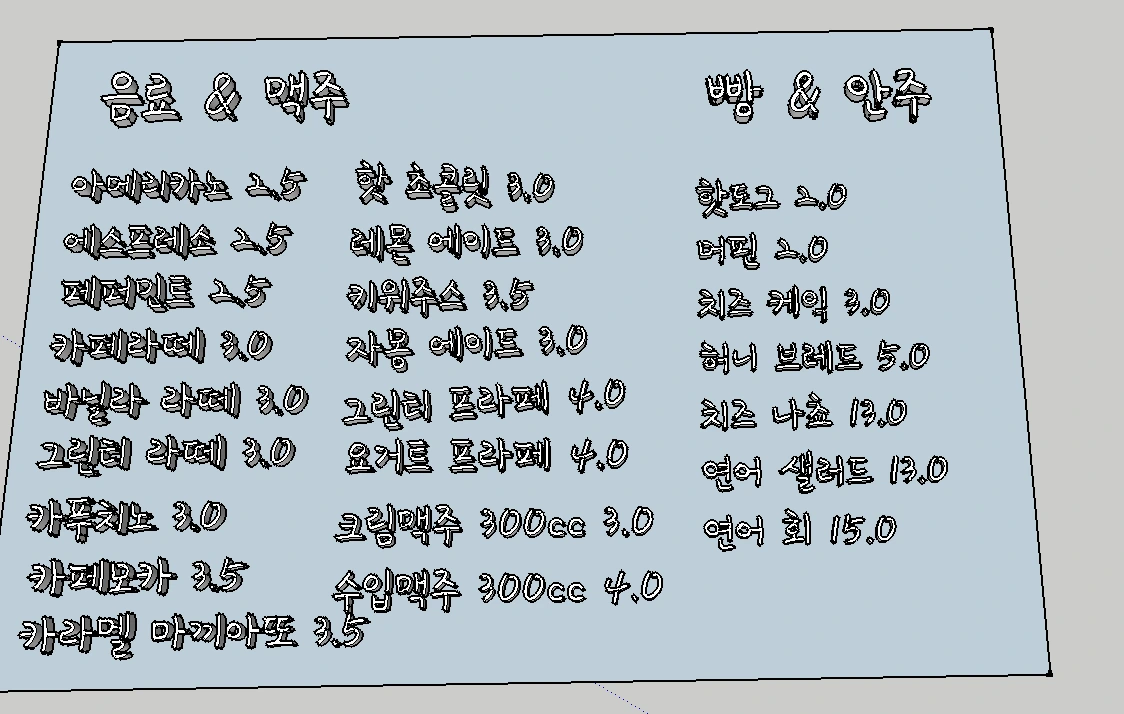 음료 & 맥주
아메리카노 2.5
에스프레소 2.5
페퍼민트 2.5
카페라떼 3.0
바닐라 라떼 3.0
그린티 라떼 3.0
카푸치노 3.0
카페모카 3.5
카라멜 마끼아또 3.5
핫 초콜릿 3.0
레몬 에이드 3.0
키위주스 3.5
자몽 에이드 3.0
그린티 프라페 4.0
요거트 프라페 4.0
크림맥주 300cc 3.0
수입맥주 300cc 4.0
빵 & 안주
핫도그 2.0
머핀 2.0
치즈 케익 3.0
허니 브레드 5.0
치즈 나쵸 13.0
연어 샐러드 13.0
연어 회 15.0